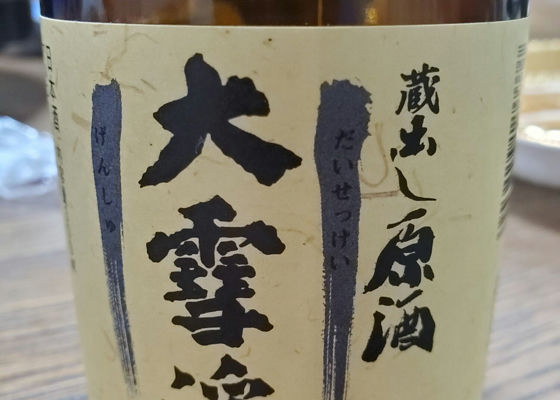 蔵出し原酒
だいせっけい
大雪渓
げんしゅ